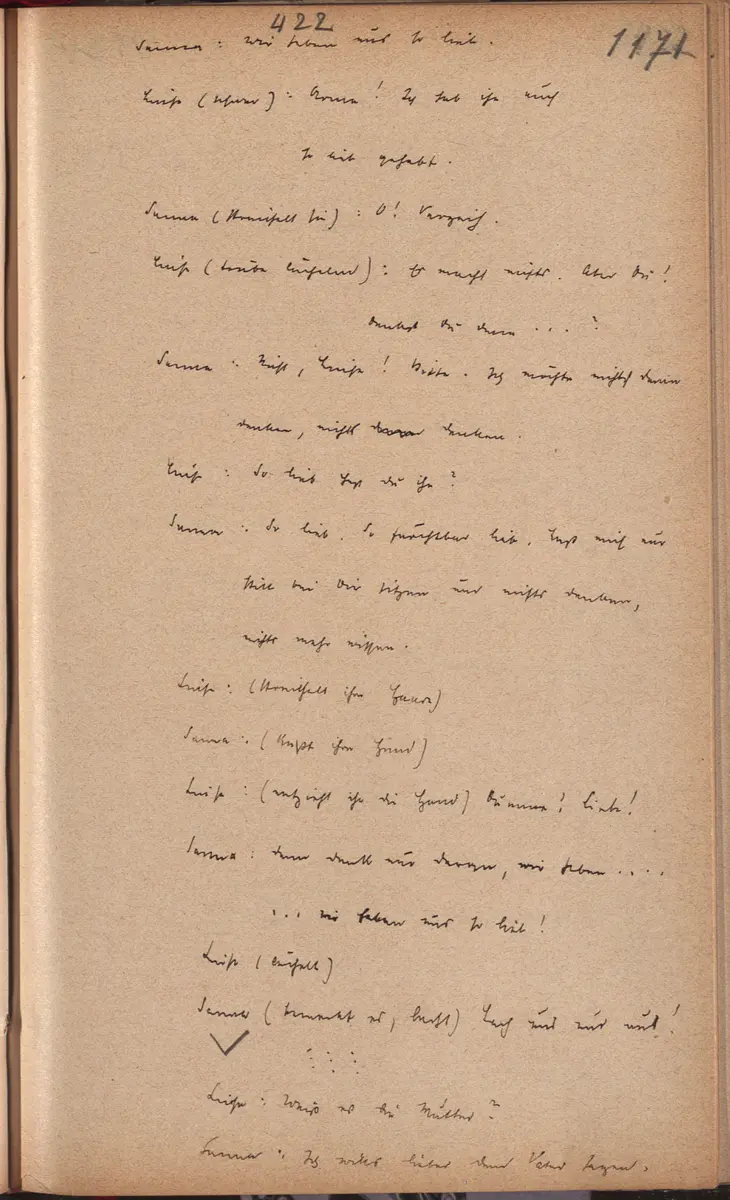 422
1171
Sanna : Wir haben uns so lieb.
Luise (schwer) : Arme! Ich hab ihn auch
so lieb gehabt.
Sanna (streichelt sie) : O! Verzeih.
Luise (trübe lächelnd) : Es macht nichts. Aber Du!
Denkst Du denn ... ?
Sanna : Nicht, Luise! Bitte. Ich möchte nichts
denken, nichts denken.
Luise : So lieb hast du ihn?
Sanna : So lieb. So furchtbar lieb. Lass mich nur
still bei Dir sitzen und nichts denken,
nichts mehr wissen.
Luise : (streichelt ihre Hand)
Sanna : (küßt ihre Hand)
Luise : (entzieht ihr die Hand) Dumme! Liebe!
Sanna : denk nur daran, wir haben ....
... wir haben uns so lieb!
Luise (lächelt)
Sanna (bemerkt es, lacht) Lach uns nur aus!
Luise : Weiß es die Mutter?
Sanna : Ich will's lieber dem Vater sagen.